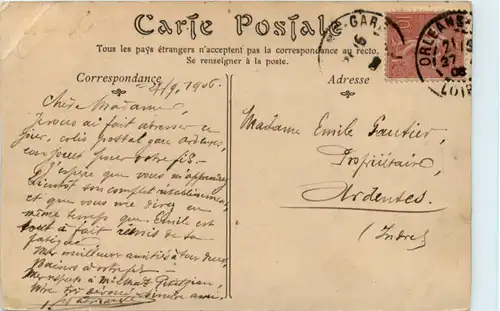 Carte Postale
Tous les pays étrangers n'acceptent pas la correspondance au recto.
Se renseigner à la poste.
Correspondance
Adresse
27/9, 1906.
Chère Madame,
Je vous ai fait adresser ce
jour, colis postal gare Ardentes,
un jouet pour votre fils.
J'espère que vous m'apprendrez
bientôt son complet rétablissement,
et que vous me direz en
même temps que Émile est
tout à fait remis de sa
fatigue
Mes meilleures amitiés à tous deux,
Baisers à votre fils
Mes respects à
Votre dévoué
Madame Emile Gautier,
Propriétaire,
Ardentes.
(Indre)
GARE
ORLEANS
27
LOIRET